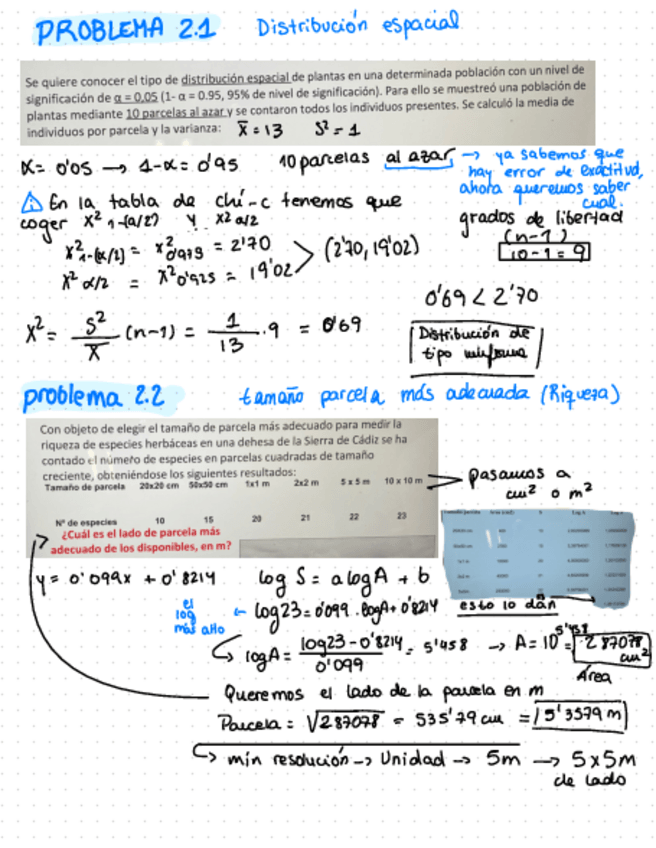 PROBLEMA 2.1 Distribución espacial
Se quiere conocer el tipo de distribución espacial de plantas en una determinada población con un nivel de
significación de α = 0,05 (1- α = 0.95, 95% de nivel de significación). Para ello se muestreó una población de
plantas mediante 10 parcelas al azar y se contaron todos los individuos presentes. Se calculó la media de
individuos por parcela y la varianza: X̄ = 13 S² = 1
α = 0'05 → 1-α = 0'95 10 parcelas al azar → ya sabemos que
hay error de exactitud,
ahora queremos saber
cual.
⚠ En la tabla de chi-c tenemos que
coger X² 1-(α/2) y X² α/2
grados de libertad
(n-1)
10-1 = 9
X² 1-(α/2) = X² 0'975 = 2'70
X² α/2 = X² 0'025 = 19'02
> (2'70, 19'02)
0'69 < 2'70
X² = S²/X̄ (n-1) = 1/13 · 9 = 0'69
Distribución de
tipo uniforme
problema 2.2 tamaño parcela más adecuada (Riqueza)
Con objeto de elegir el tamaño de parcela más adecuado para medir la
riqueza de especies herbáceas en una dehesa de la Sierra de Cádiz se ha
contado el número de especies en parcelas cuadradas de tamaño
creciente, obteniéndose los siguientes resultados:
Tamaño de parcela 20x20 cm 50x50 cm 1x1 m 2x2 m 5 x 5 m 10 x 10 m
→ pasamos a
cm² o m²
Nº de especies 10 15 20 21 22 23
¿Cuál es el lado de parcela más
adecuado de los disponibles, en m?
y = 0'099x + 0'8214 log S = a log A + b
esto lo dan
el
log
más alto
← log23 = 0'099 · log A + 0'8214
↳ log A = log23 - 0'8214 / 0'099 = 5'458 → A = 10^5'458 = 287078 cm²
Área
Queremos el lado de la parcela en m
Parcela = √287078 = 535'79 cm = 5'3579 m
↳ min resolución → Unidad → 5m → 5x5m
de lado